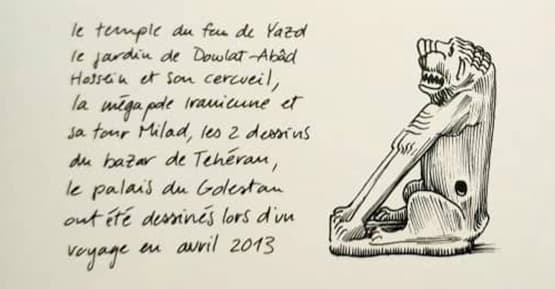 le temple du feu de Yazd
le jardin de Dowlat-Abâd
Hossein et son cercueil,
la mégapole Iranienne et
sa tour Milad, les 2 dessins
du bazar de Téhéran,
le palais du Golestan
ont été dessinés lors d'un
voyage en avril 2013